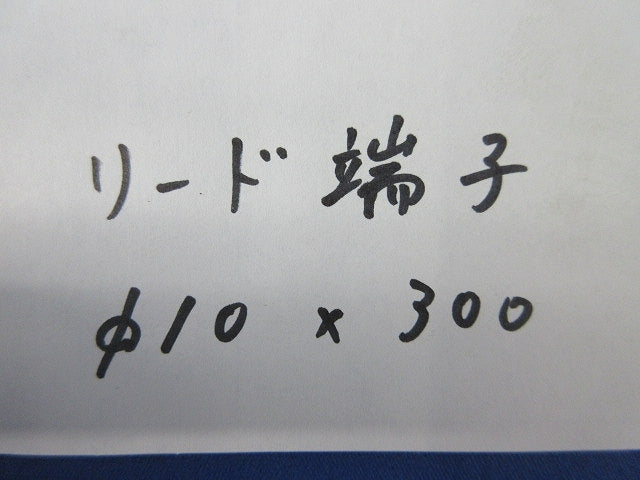 リード端子
φ10 x 300